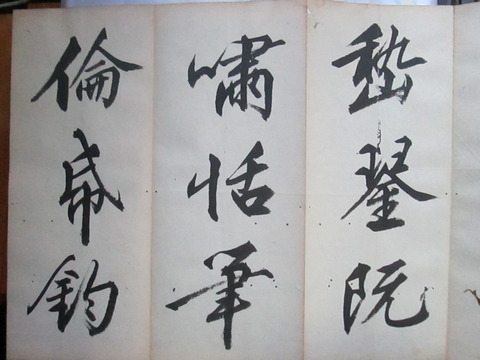 嵇琴阮
嘯恬筆
倫紙鈞